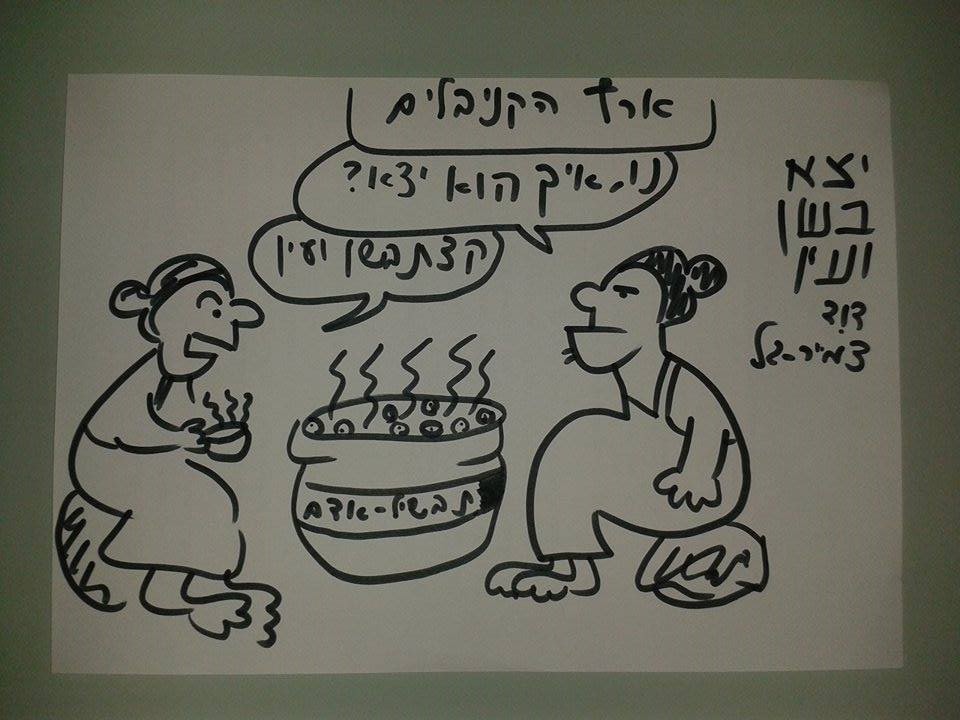 ארץ הקניבלים
נו, איך הוא יצא?
קצת בשן ועין
יצא
בשן
ועין
דוד
צמיר-גל
תבשיל-אדם